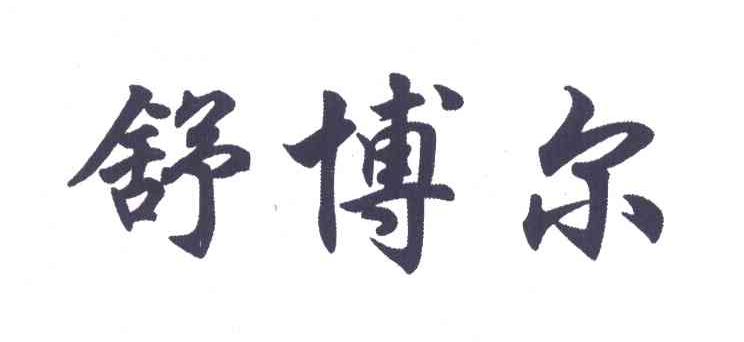 舒博尔